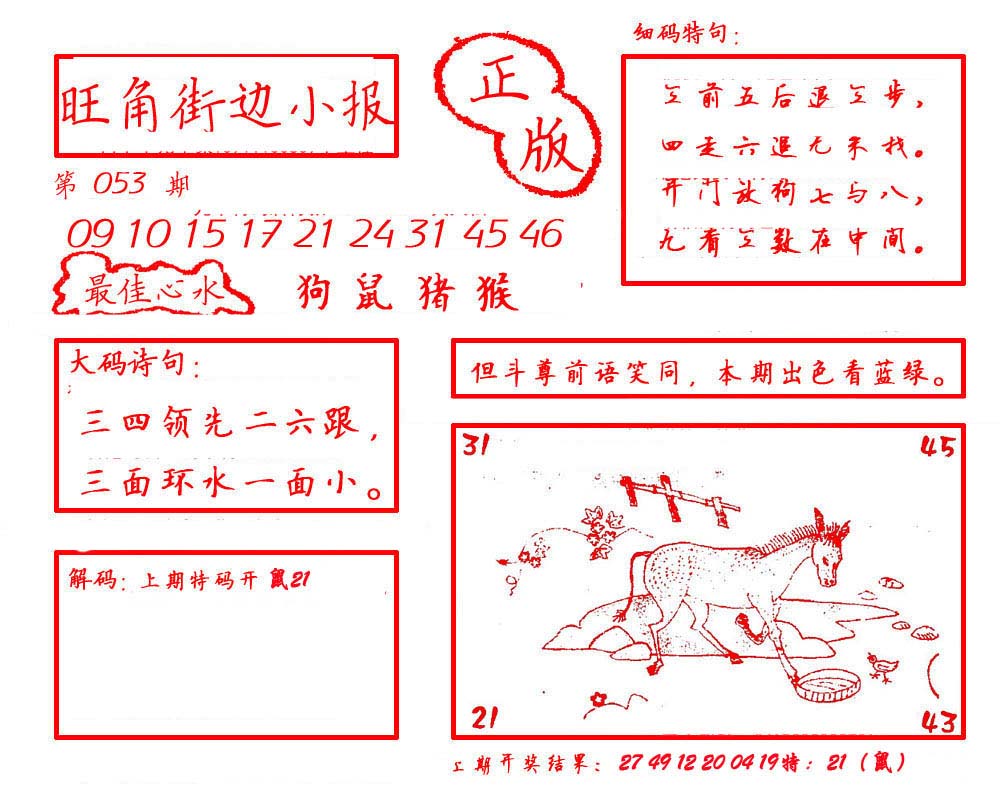 旺角街边小报
正
版
第 053 期
09 10 15 17 21 24 31 45 46
最佳心水
狗 鼠 猪 猴
细码特句：
三前五后退三步，
四走六退九来找。
开门放狗七与八，
九看三数在中间。
大码诗句：
三四领先二六跟，
三面环水一面小。
但斗尊前语笑同，本期出色看蓝绿。
解码：上期特码开 鼠21
31
45
21
43
上期开奖结果：27 49 12 20 04 19特：21（鼠）